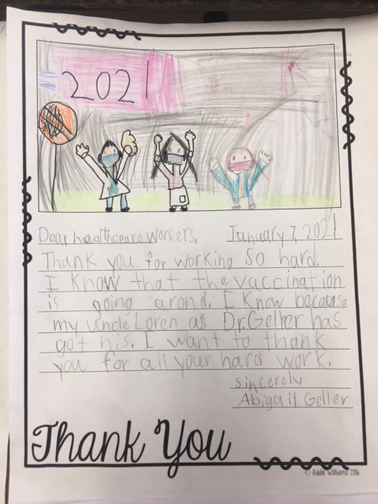 2021
Dear healthcare workers, January 7, 2021
Thank you for working so hard.
I know that the vaccination
is going arond. I know because
my uncle Loren as Dr. Geller has
got his. I want to thank
you for all your hard work.
sincerely
Abigail Geller
Thank You
© Addie Williams 2016